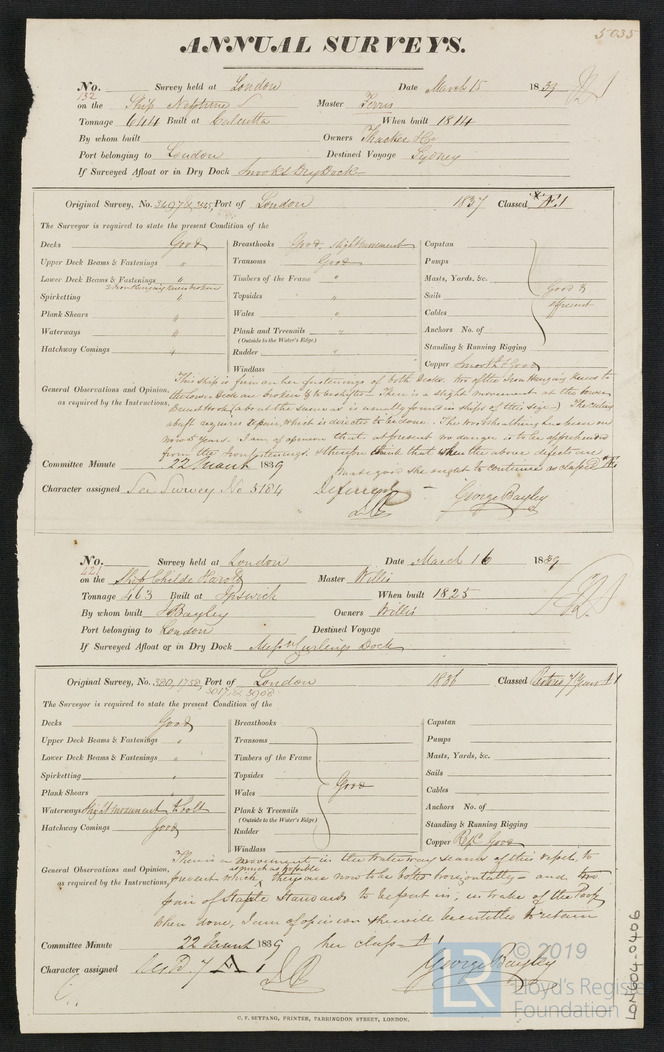 5035
ANNUAL SURVEYS.
No. 132 Survey held at London Date March 15 1839
on the Ship Neptune Master Ferris
Tonnage 644 Built at Calcutta When built 1814
By whom built Owners Thacker & Co
Port belonging to London Destined Voyage Sydney
If Surveyed Afloat or in Dry Dock Smooks Dry Dock
Original Survey, No. Port of London 1837 Classed Æ 1
The Surveyor is required to state the present Condition of the
Decks Good Breasthooks Good slight movement Capstan
Upper Deck Beams & Fastenings " Transoms Good Pumps
Lower Deck Beams & Fastenings " Timbers of the Frame " Masts, Yards, &c.
2 Iron Hanging Knees broken
Spirketting " Topsides " Sails Good &
Plank Shears " Wales " Cables efficient
Waterways " Plank and Treenails " Anchors No. of
(Outside to the Water's Edge.)
Hatchway Comings " Rudder " Standing & Running Rigging
Windlass Copper Good
General Observations and Opinion, as required by the Instructions.
This ship is firm on her fastenings of both Decks. two of the Iron Hanging Knees to
the lower Deck are broken & to be shifted – There is a slight movement at the lower
Breasthook (about the same as is usually found in ships of this size) The
abaft requires repair, which is directed to be done. The wood sheathing has been on
now 5 years. I am of opinion that at present no danger is to be apprehended
from the Iron fastenings & therefore think that when the above defects are
made good she ought to continue as classed Æ 1
Committee Minute 22 March 1839
Character assigned See Survey No 5184 Deferred – George Bayley
No. 421 Survey held at London Date March 16 1839
on the Ship Childe Harold Master Willis
Tonnage 463 Built at Ipswich When built 1825
By whom built Bayley Owners Willis
Port belonging to London Destined Voyage
If Surveyed Afloat or in Dry Dock Messrs Curlings Dock
Original Survey, No. 380, 1752, 3017 & 3908 Port of London 1836 Classed 7 Years A 1
The Surveyor is required to state the present Condition of the
Decks Good Breasthooks Capstan
Upper Deck Beams & Fastenings " Transoms Pumps
Lower Deck Beams & Fastenings " Timbers of the Frame Masts, Yards, &c.
Spirketting " Topsides Sails
Plank Shears " Wales Good Cables
Waterways slight movement to bolt Plank & Treenails Anchors No. of
(Outside to the Water's Edge.)
Hatchway Comings Good Rudder Standing & Running Rigging
Windlass Copper Good
General Observations and Opinion, as required by the Instructions.
There is a movement in the waterway seams of this vessel, to
prevent which as much as possible they are now to be bolted horizontally – and two
pair of Staple Standards to be put in, in wake of the
When done, I am of opinion she will be entitled to retain
her class – A 1
Committee Minute 22 March 1839
Character assigned 7 A 1 George Bayley
C. F. SEYFANG, PRINTER, FARRINGDON STREET, LONDON.
© 2019
Lloyd's Register
Foundation
LR
LON604-0406